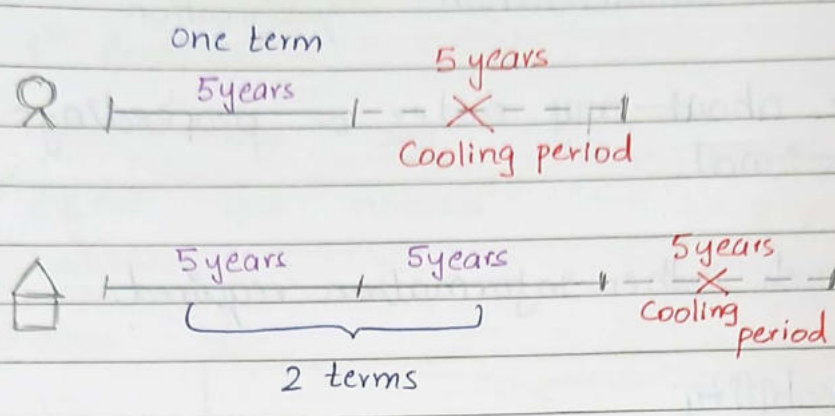 one term
5 years
5 years
Cooling period
5 years
5 years
5 years
Cooling
period
2 terms